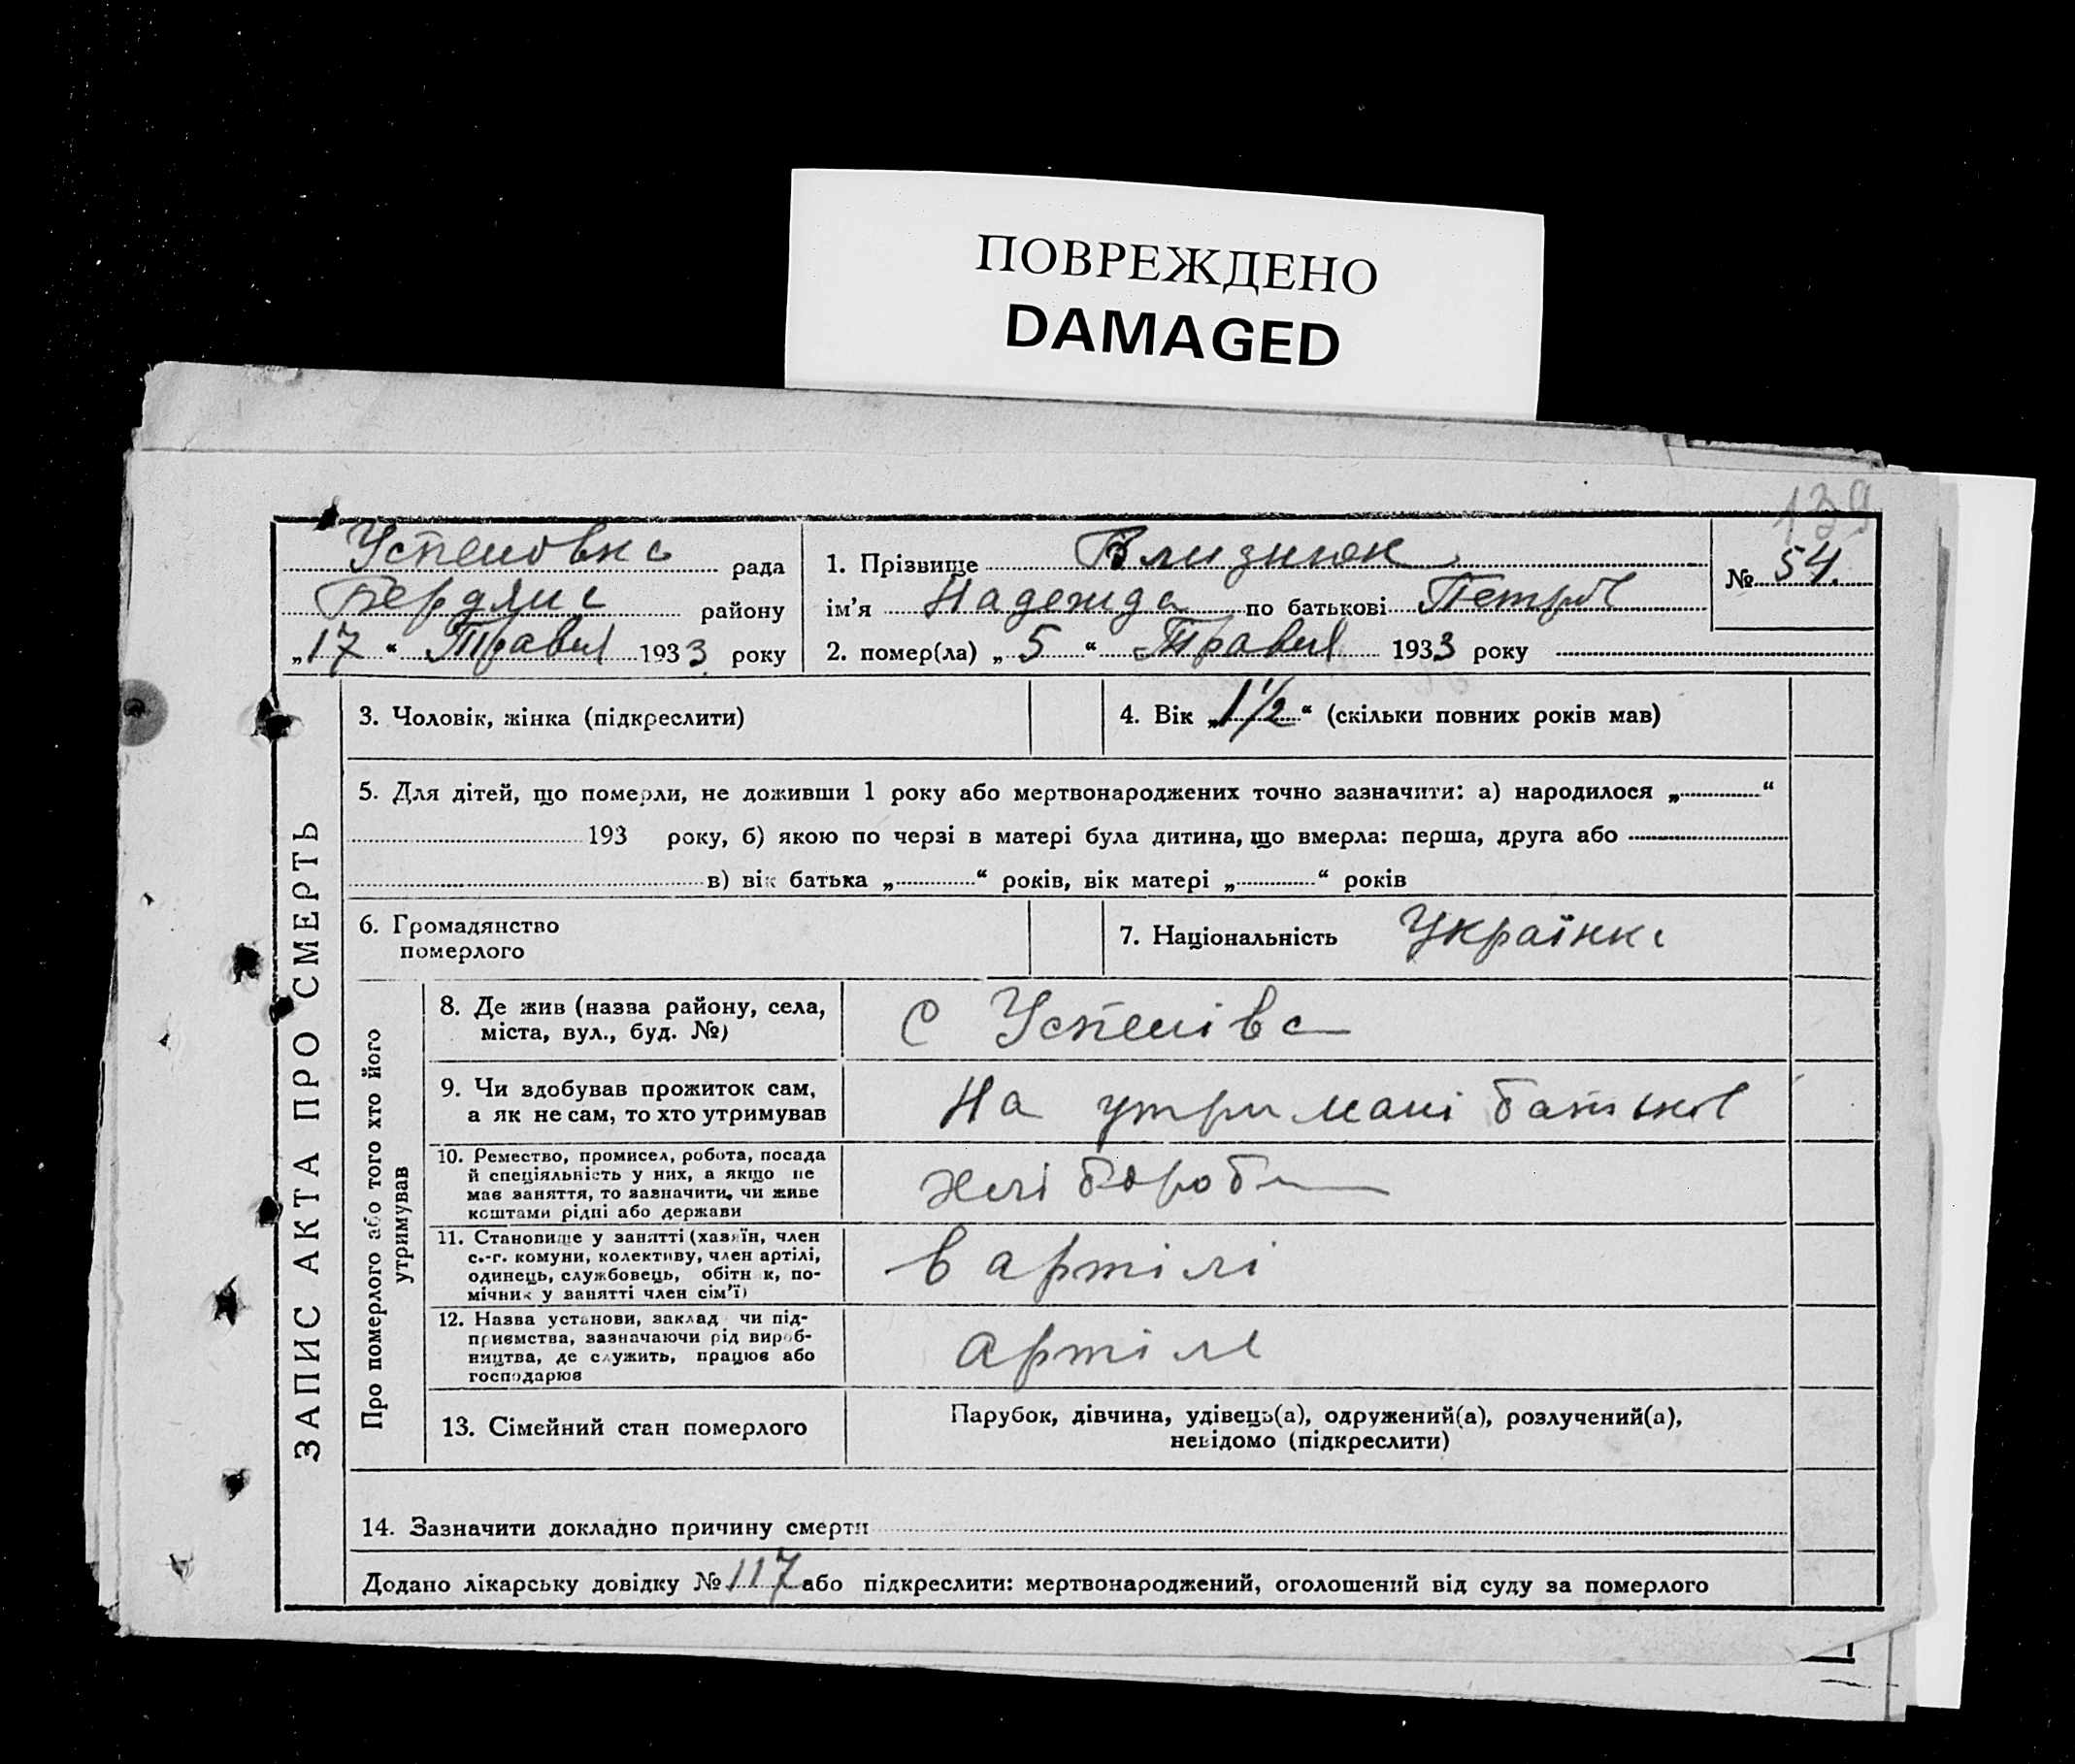 ПОВРЕЖДЕНО
DAMAGED
139
Успеновка рада
Бердянс району
„17“ Травня 1933 року
1. Прізвище Близнюк
ім’я Надежда по батькові Петров
№ 54.
2. помер(ла) „5“ Травня 1933 року
ЗАПИС АКТА ПРО СМЕРТЬ
3. Чоловік, жінка (підкреслити)
4. Вік „1 1/2“ (скільки повних років мав)
5. Для дітей, що померли, не доживши 1 року або мертвонароджених точно зазначити: а) народилося „ “
193 року, б) якою по черзі в матері була дитина, що вмерла: перша, друга або
в) вік батька „ “ років, вік матері „ “ років
6. Громадянство
померлого
7. Національність Українка
Про померлого або того хто його
утримував
8. Де жив (назва району, села,
міста, вул., буд. №)
с Успенівка
9. Чи здобував прожиток сам,
а як не сам, то хто утримував
На утримані батьків
10. Ремество, промисел, робота, посада
й спеціяльність у них, а якщо не
має заняття, то зазначити, чи живе
коштами рідні або держави
хлібороб
11. Становище у занятті (хазяїн, член
с.-г. комуни, колективу, член артілі,
одинець, службовець, обітн к, по-
мічник у занятті член сім’ї)
в артілі
12. Назва установи, заклад чи під-
приємства, зазначаючи рід вироб-
ництва, де служить, працює або
господарює
артіль
13. Сімейний стан померлого
Парубок, дівчина, удівець(а), одружений(а), розлучений(а),
невідомо (підкреслити)
14. Зазначити докладно причину смерти
Додано лікарську довідку № 117 або підкреслити: мертвонароджений, оголошений від суду за померлого